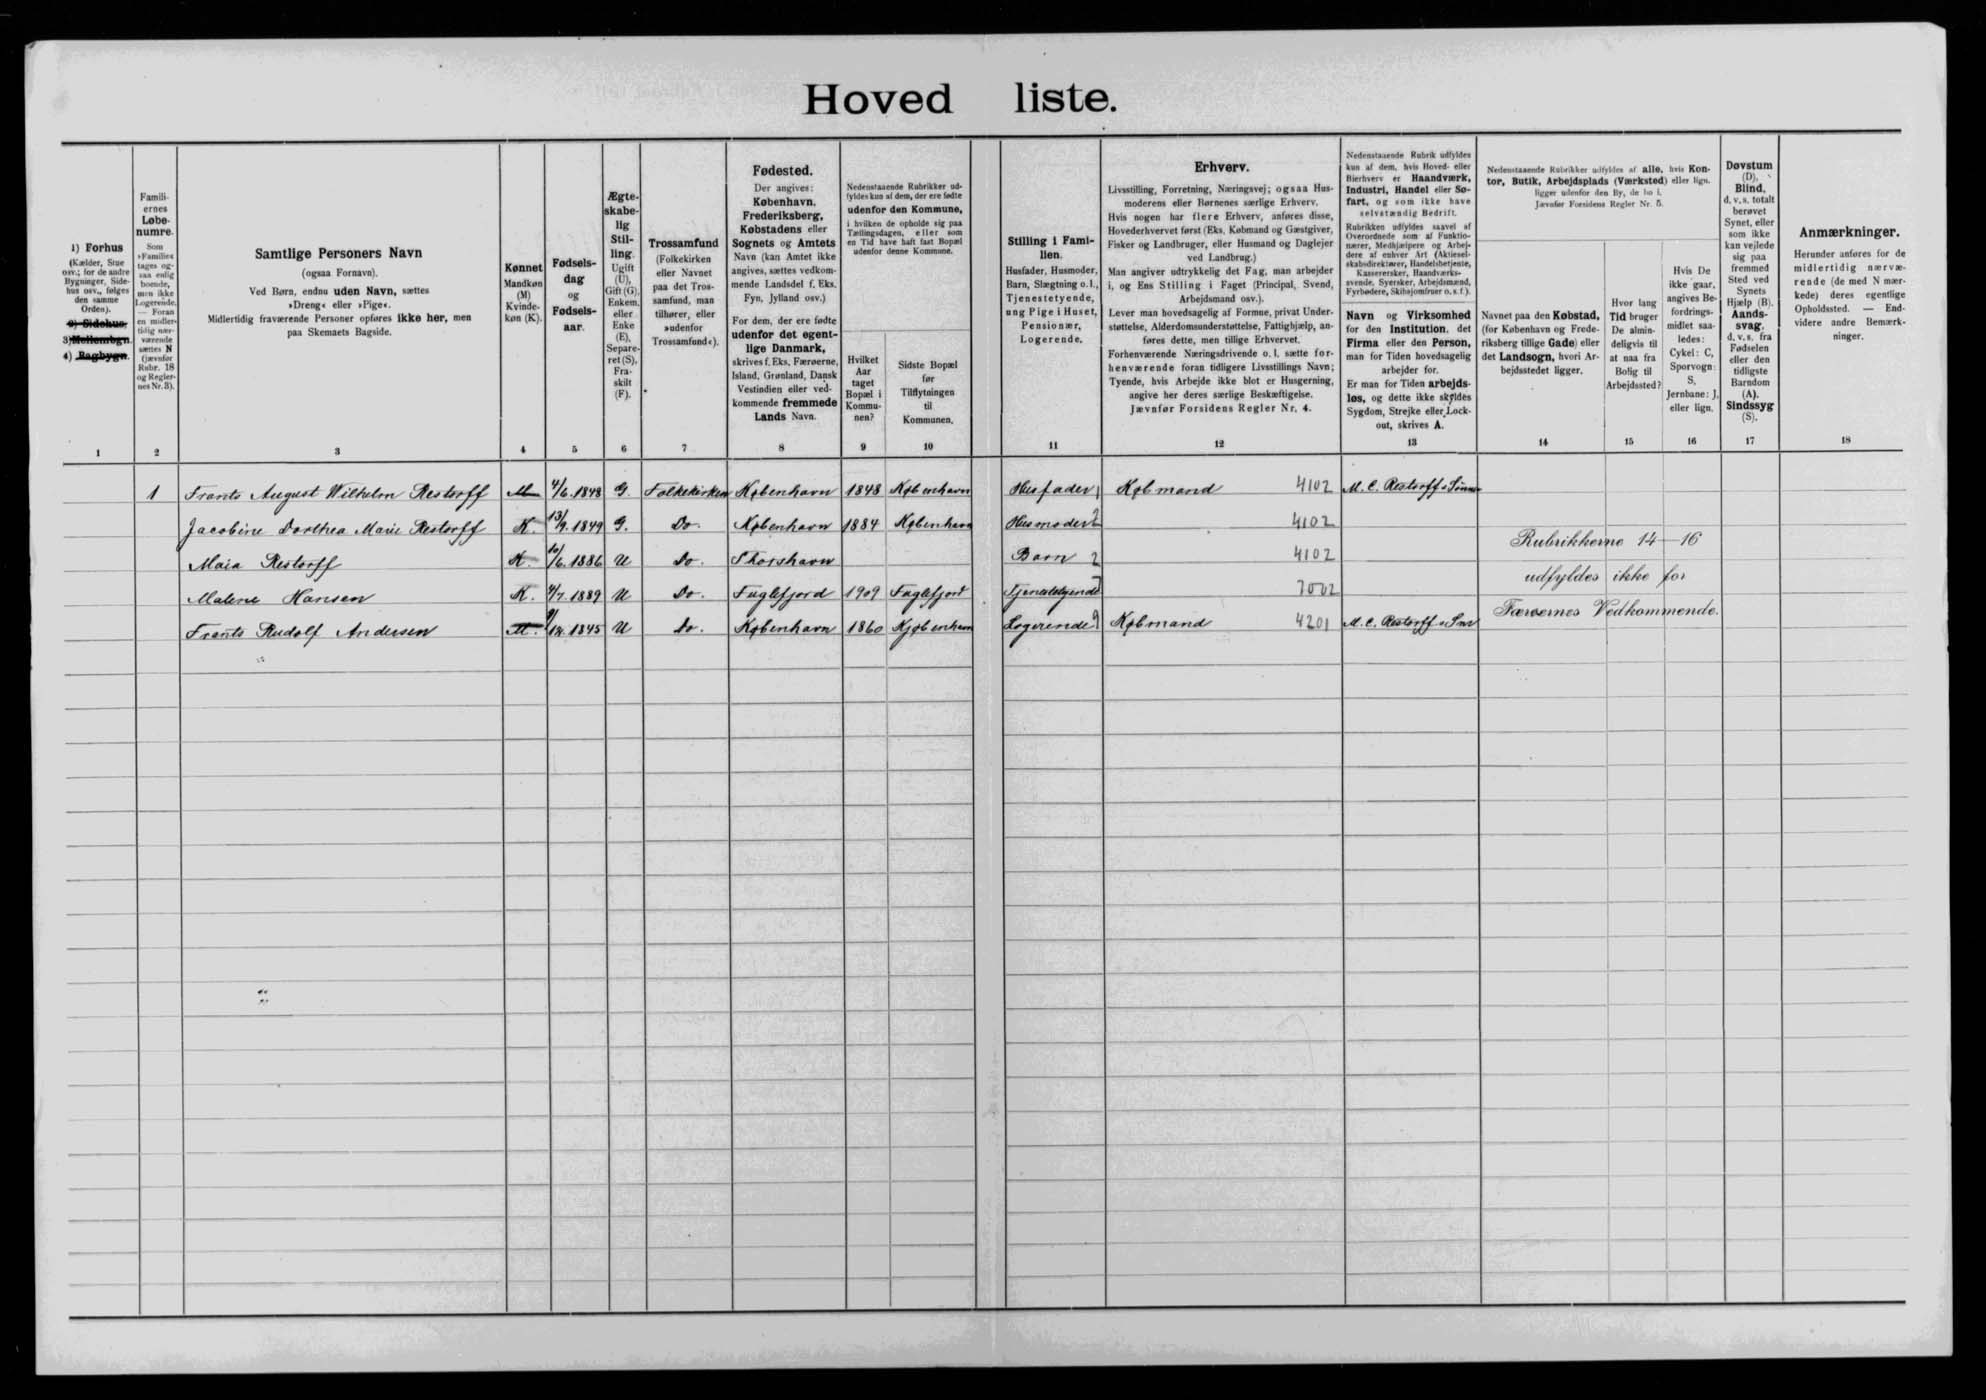 Hoved liste.
1) Forhus
(Kælder, Stue
osv.; for de andre
Bygninger, Side-
hus osv., følges
den samme
Orden).
2) Sidehus.
3) Mellembgn.
4) Bagbygn.
1
Famili-
ernes
Løbe-
numre.
Som
»Familie«
tages og-
saa enlig
boende,
men ikke
Logerende.
— Foran
en midler-
tidig nær-
værende
sættes N
(jævnfør
Rubr. 18
og Regler-
nes Nr. 3).
2
Samtlige Personers Navn
(ogsaa Fornavn).
Ved Børn, endnu uden Navn, sættes
»Dreng« eller »Pige«.
Midlertidig fraværende Personer opføres ikke her, men
paa Skemaets Bagside.
3
Kønnet
Mandkøn
(M)
Kvinde-
køn (K).
4
Fødsels-
dag
og
Fødsels-
aar.
5
Ægte-
skabe-
lig
Stil-
ling.
Ugift
(U),
Gift (G),
Enkem.
eller
Enke
(E),
Separe-
ret (S),
Fra-
skilt
(F).
6
Trossamfund
(Folkekirken
eller Navnet
paa det Tros-
samfund, man
tilhører, eller
»udenfor
Trossamfund«).
7
Fødested.
Der angives:
København,
Frederiksberg,
Købstadens eller
Sognets og Amtets
Navn (kan Amtet ikke
angives, sættes vedkom-
mende Landsdel f. Eks.
Fyn, Jylland osv.)
For dem, der ere fødte
udenfor det egent-
lige Danmark,
skrives f. Eks. Færøerne,
Island, Grønland, Dansk
Vestindien eller ved-
kommende fremmede
Lands Navn.
8
Nedenstaaende Rubrikker ud-
fyldes kun af dem, der ere fødte
udenfor den Kommune,
i hvilken de opholde sig paa
Tællingsdagen, eller som
en Tid have haft fast Bopæl
udenfor denne Kommune.
Hvilket
Aar
taget
Bopæl i
Kommu-
nen?
9
Sidste Bopæl
før
Tilflytningen
til
Kommunen.
10
Stilling i Fami-
lien.
Husfader, Husmoder,
Barn, Slægtning o.l.,
Tjenestetyende,
ung Pige i Huset,
Pensionær,
Logerende.
11
Erhverv.
Livsstilling, Forretning, Næringsvej; ogsaa Hus-
moderens eller Børnenes særlige Erhverv.
Hvis nogen har flere Erhverv, anføres disse,
Hovederhvervet først (Eks. Købmand og Gæstgiver,
Fisker og Landbruger, eller Husmand og Daglejer
ved Landbrug.)
Man angiver udtrykkelig det Fag, man arbejder
i, og Ens Stilling i Faget (Principal, Svend,
Arbejdsmand osv.).
Lever man hovedsagelig af Formue, privat Under-
støttelse, Alderdomsunderstøttelse, Fattighjælp, an-
føres dette, men tillige Erhvervet.
Forhenværende Næringsdrivende o. l. sætte for-
henværende foran tidligere Livsstillings Navn;
Tyende, hvis Arbejde ikke blot er Husgerning,
angive her deres særlige Beskæftigelse.
Jævnfør Forsidens Regler Nr. 4.
12
Nedenstaaende Rubrik udfyldes
kun af dem, hvis Hoved- eller
Bierhverv er Haandværk,
Industri, Handel eller Sø-
fart, og som ikke have
selvstændig Bedrift.
Rubrikken udfyldes saavel af
Overordnede som af Funktio-
nærer, Medhjælpere og Arbej-
dere af enhver Art (Aktiesel-
skabsdirektører, Handelsbetjente,
Kasserersker, Haandværks-
svende, Syersker, Arbejdsmænd,
Fyrbødere, Skibsjomfruer o.s.f.).
Navn og Virksomhed
for den Institution, det
Firma eller den Person,
man for Tiden hovedsagelig
arbejder for.
Er man for Tiden arbejds-
løs, og dette ikke skyldes
Sygdom, Strejke eller Lock-
out, skrives A.
13
Nedenstaaende Rubrikker udfyldes af alle, hvis Kon-
tor, Butik, Arbejdsplads (Værksted) eller lign.
ligger udenfor den By, de bo i.
Jævnfør Forsidens Regler Nr. 5.
Navnet paa den Købstad,
(for København og Frede-
riksberg tillige Gade) eller
det Landsogn, hvori Ar-
bejdsstedet ligger.
14
Hvor lang
Tid bruger
De almin-
deligvis til
at naa fra
Bolig til
Arbejdssted?
15
Hvis De
ikke gaar,
angives Be-
fordrings-
midlet saa-
ledes:
Cykel: C,
Sporvogn:
S,
Jernbane: J,
eller lign.
16
Døvstum
(D),
Blind,
d. v. s. totalt
berøvet
Synet, eller
som ikke
kan vejlede
sig paa
fremmed
Sted ved
Synets
Hjælp (B).
Aands-
svag,
d. v. s. fra
Fødselen
eller den
tidligste
Barndom
(A).
Sindssyg
(S).
17
Anmærkninger.
Herunder anføres for de
midlertidig nærvæ-
rende (de med N mær-
kede) deres egentlige
Opholdssted. — End-
videre andre Bemærk-
ninger.
18
1 Frants August Wilhelm Restorff M 4/6.1848 G. Folkekirken København 1848 København Husfader 1 Købmand 4102 M. C. Restorff & Sønner
Jacobine Dorthea Marie Restorff K. 13/9.1849 G. Do. København 1884 København Husmoder 2 4102
Maia Restorff K. 10/6.1886 U Do. Thorshavn Barn 2 4102
Malene Hansen K. 4/7.1889 U Do. Fuglefjord 1909 Fuglefjord Tjenestetyende 7 7002
Frants Rudolf Andersen M. 1845 U Do. København 1860 Kjøbenhavn Logerende 9 Købmand 4201 M. C. Restorff & Snr
Rubrikkerne 14—16
udfyldes ikke for
Færøernes Vedkommende.